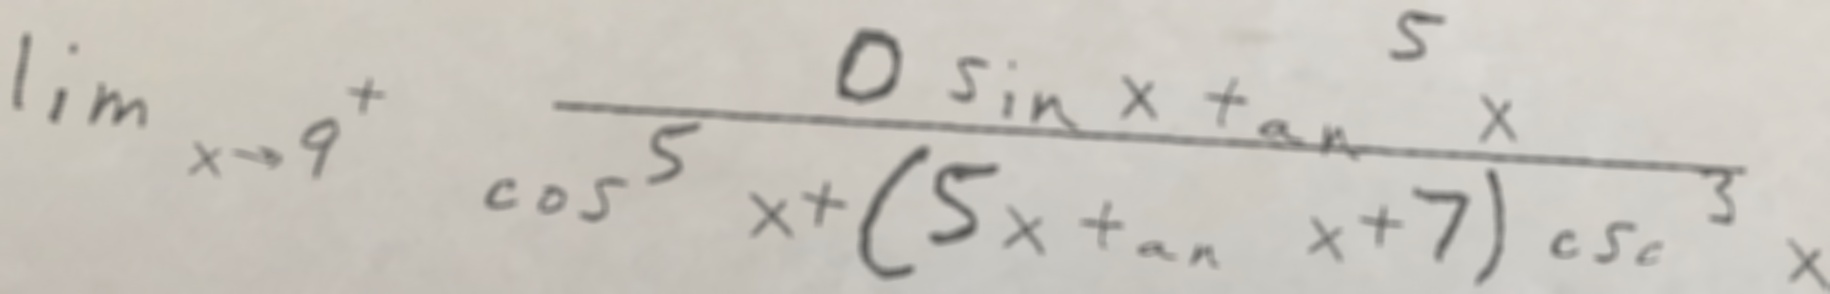 lim x→9⁺ (0 sin x tan⁵ x) / (cos⁵ x + (5x tan x + 7) csc³ x)